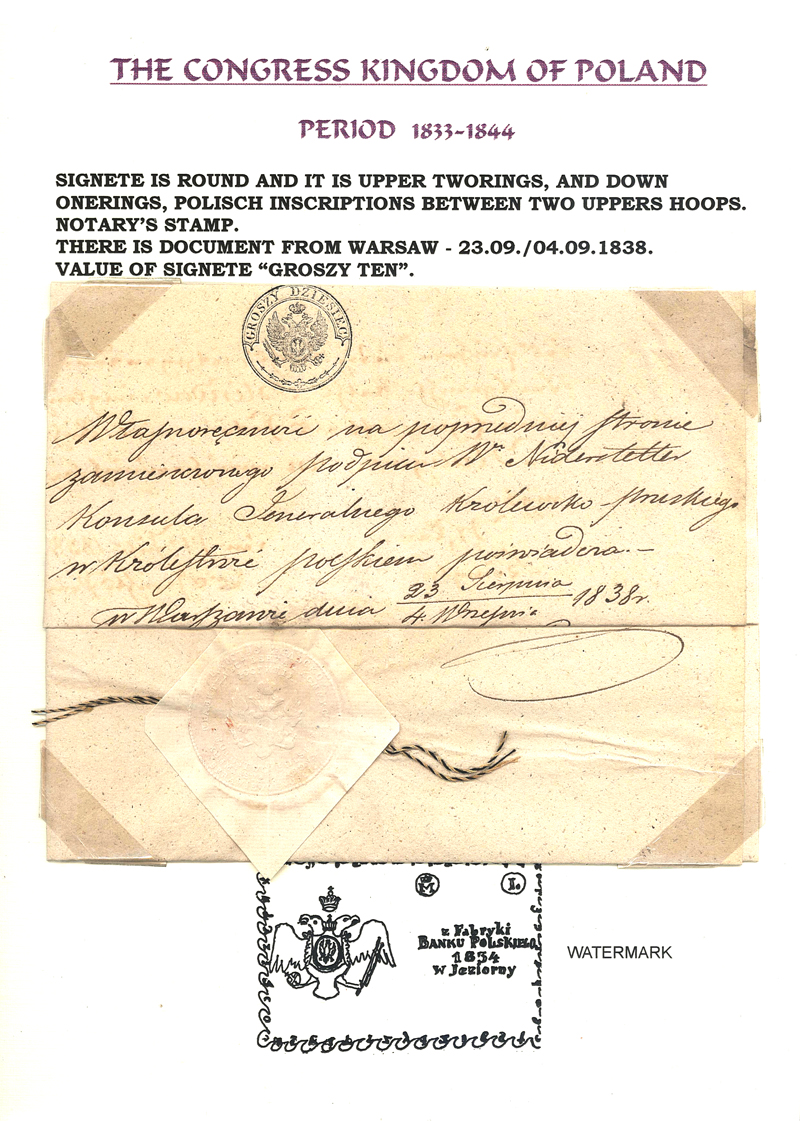 THE CONGRESS KINGDOM OF POLAND
PERIOD 1833-1844
SIGNETE IS ROUND AND IT IS UPPER TWORINGS, AND DOWN
ONERINGS, POLISCH INSCRIPTIONS BETWEEN TWO UPPERS HOOPS.
NOTARY'S STAMP.
THERE IS DOCUMENT FROM WARSAW - 23.09./04.09.1838.
VALUE OF SIGNETE “GROSZY TEN”.
GROSZY DZIESIĘĆ
Własnoręczność na poprzedniej stronie
zamieszczonego podpisu Wo Niderstetter
Konsula Jeneralnego Królewsko-pruskiego
w Królestwie polskiem poświadcza.-
w Warszawie dnia 23 Sierpnia / 4 Września 1838 r.
M I.
z Fabryki
BANKU POLSKIEGO
1834
w Jeziorny
WATERMARK